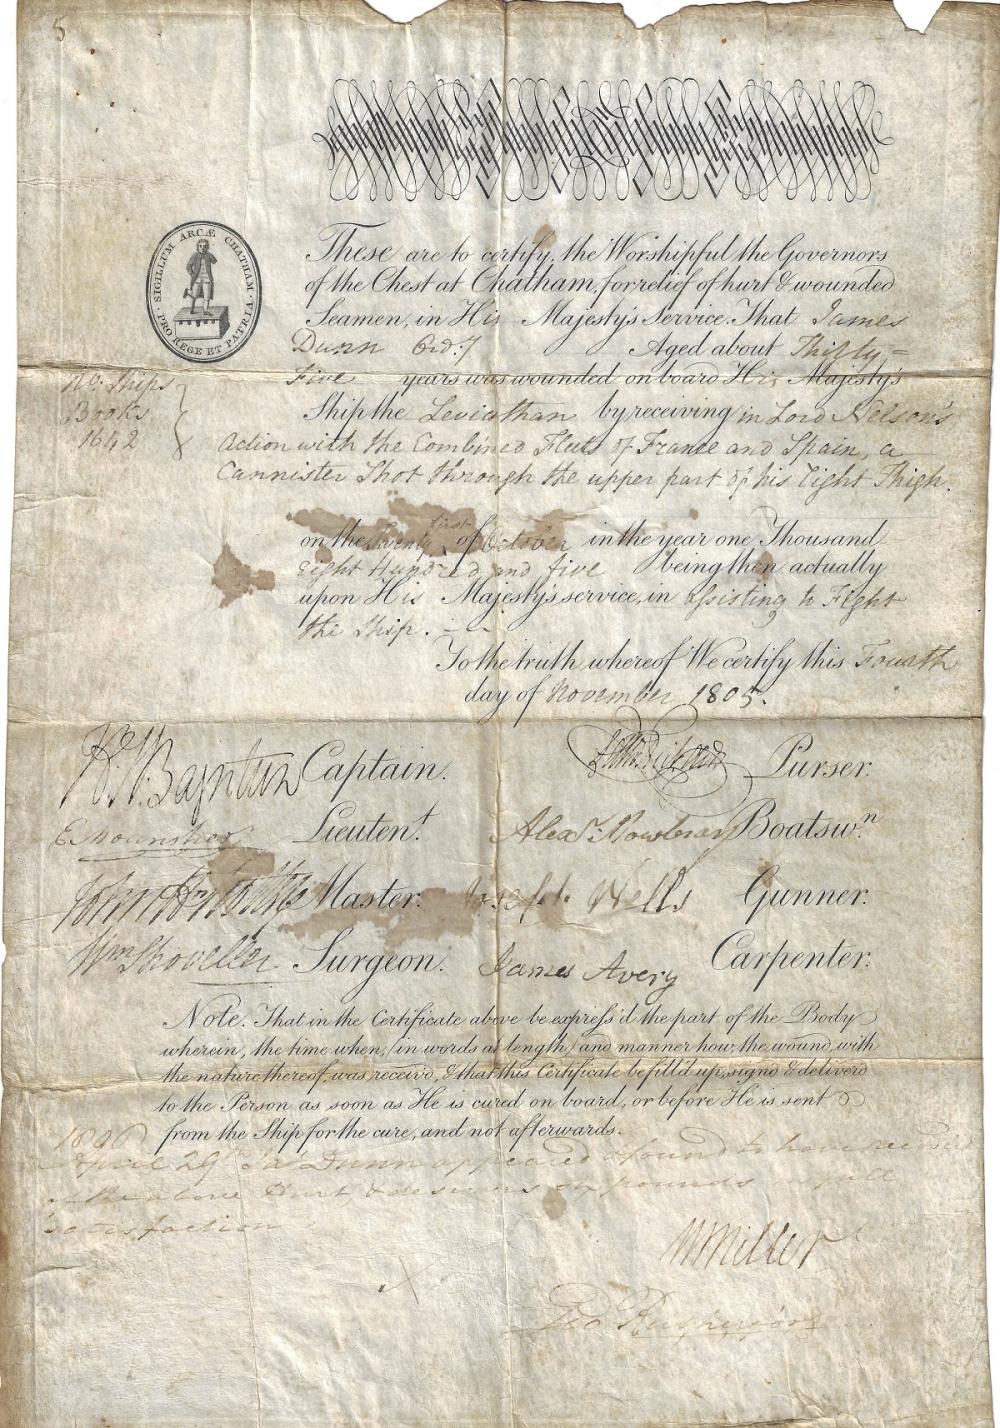 5
SIGILLUM ARCÆ CHATHAM
PRO REGE ET PATRIA
These are to certify, the Worshipful the Governors
of the Chest at Chatham, for relief of hurt & wounded
Seamen, in His Majesty's Service. That James
Dunn Ord:y Aged about Thirty
Five years was wounded on board His Majesty's
No. Ships
Books
1642
Ship the Leviathan by receiving in Lord Nelson's
action with the Combined Fleets of France and Spain, a
Cannister Shot through the upper part of his right Thigh.
on the Twenty first of October in the year one Thousand
Eight Hundred and five being then actually
upon His Majesty's service, in assisting to Fight
the Ship.
To the truth whereof We certify this Fourth
day of November 1805.
H. W. Bayntun Captain. Purser.
E. Mounsher Lieuten.t Alex.r Mowbray Boatsw.n
John Master. Joseph Wells Gunner.
Wm Shoveller Surgeon. James Avery Carpenter.
Note. That in the Certificate above be express'd the part of the Body
wherein, the time when, (in words at length) and manner how, the wound with
the nature thereof, was receiv'd, & that this Certificate be fill'd up, sign'd & deliver'd
to the Person as soon as He is cured on board, or before He is sent
from the Ship for the cure, and not afterwards.
1806
April 29th Jas Dunn appeared & found to have receiv'd
the above Hurt & deserves six pounds in full
satisfaction
M Miller
Geo